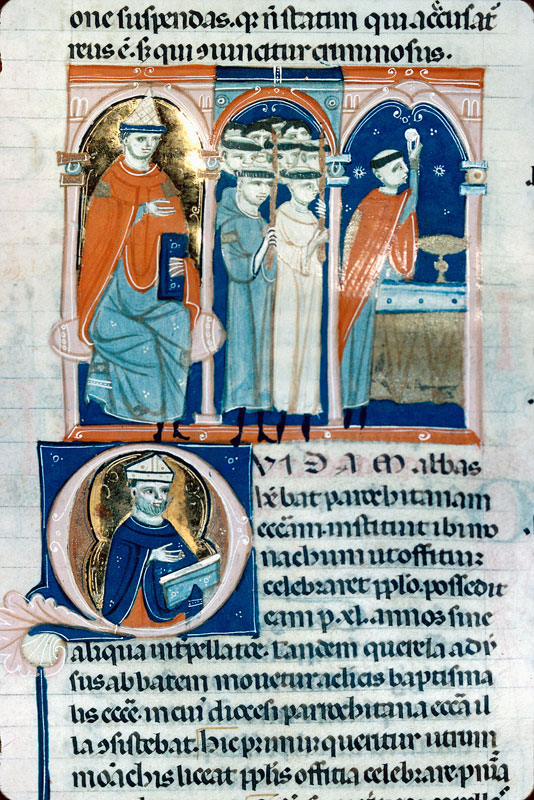 one suspendas. qr n statim qui accusat
reus e. s qui 9uincitur criminosus.
QVIDAM abbas
hebat parrochitanam
ecceam. instituit ibi mo
nachum ut offitiuz
celebraret pplo. possedit
eam p. xl. annos sine
aliqua intpellatoe. Tandem querela ad
sus abbatem mouetur a clicis baptisma
lis ecce. in cui diocesi parrochitana ecca il
la 9sistebat. Hic primuz queritur utrum
monachis liceat pplis offitia celebrare. p